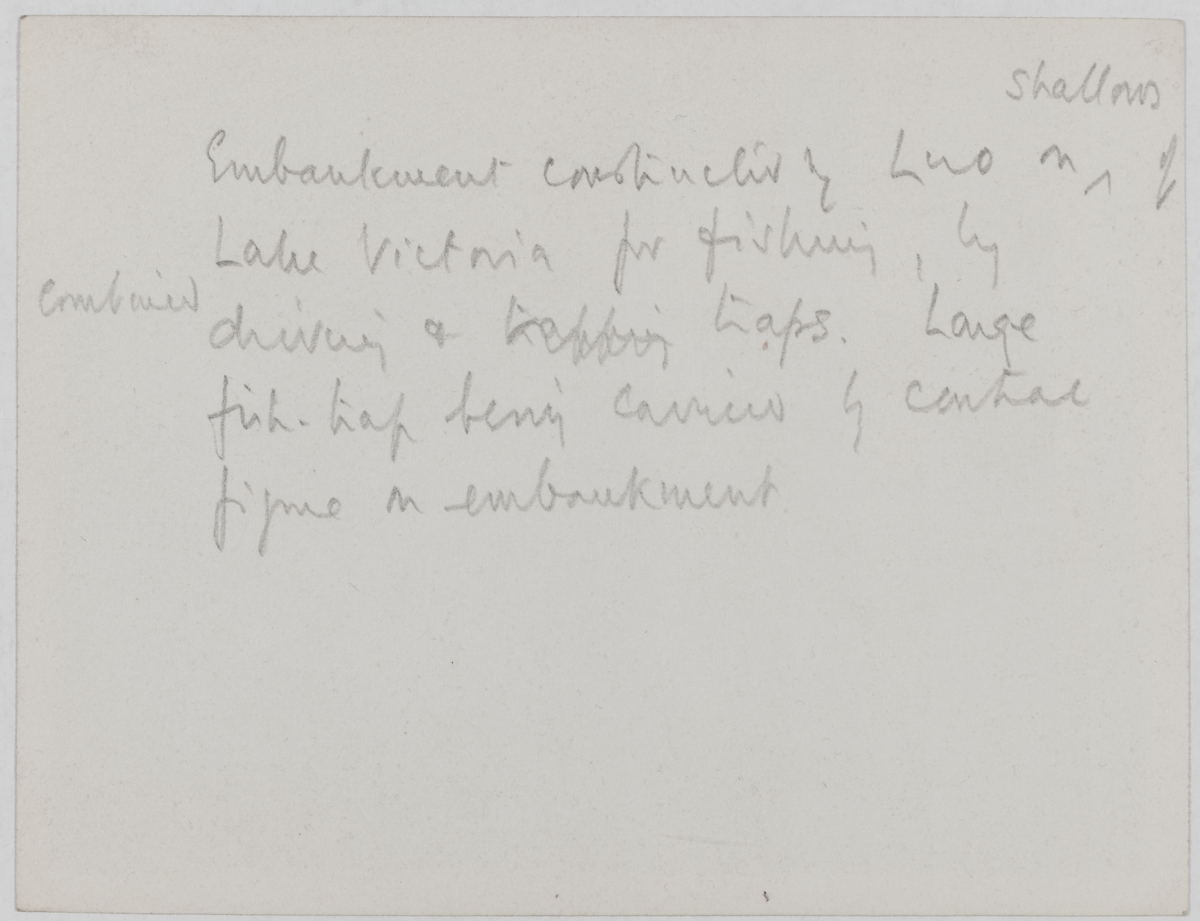 shallows
Embankment constructed by Luo on ^ of
Lake Victoria for fishing, by
combined
driving & trapping traps. Large
fish-trap being carried by central
figure on embankment